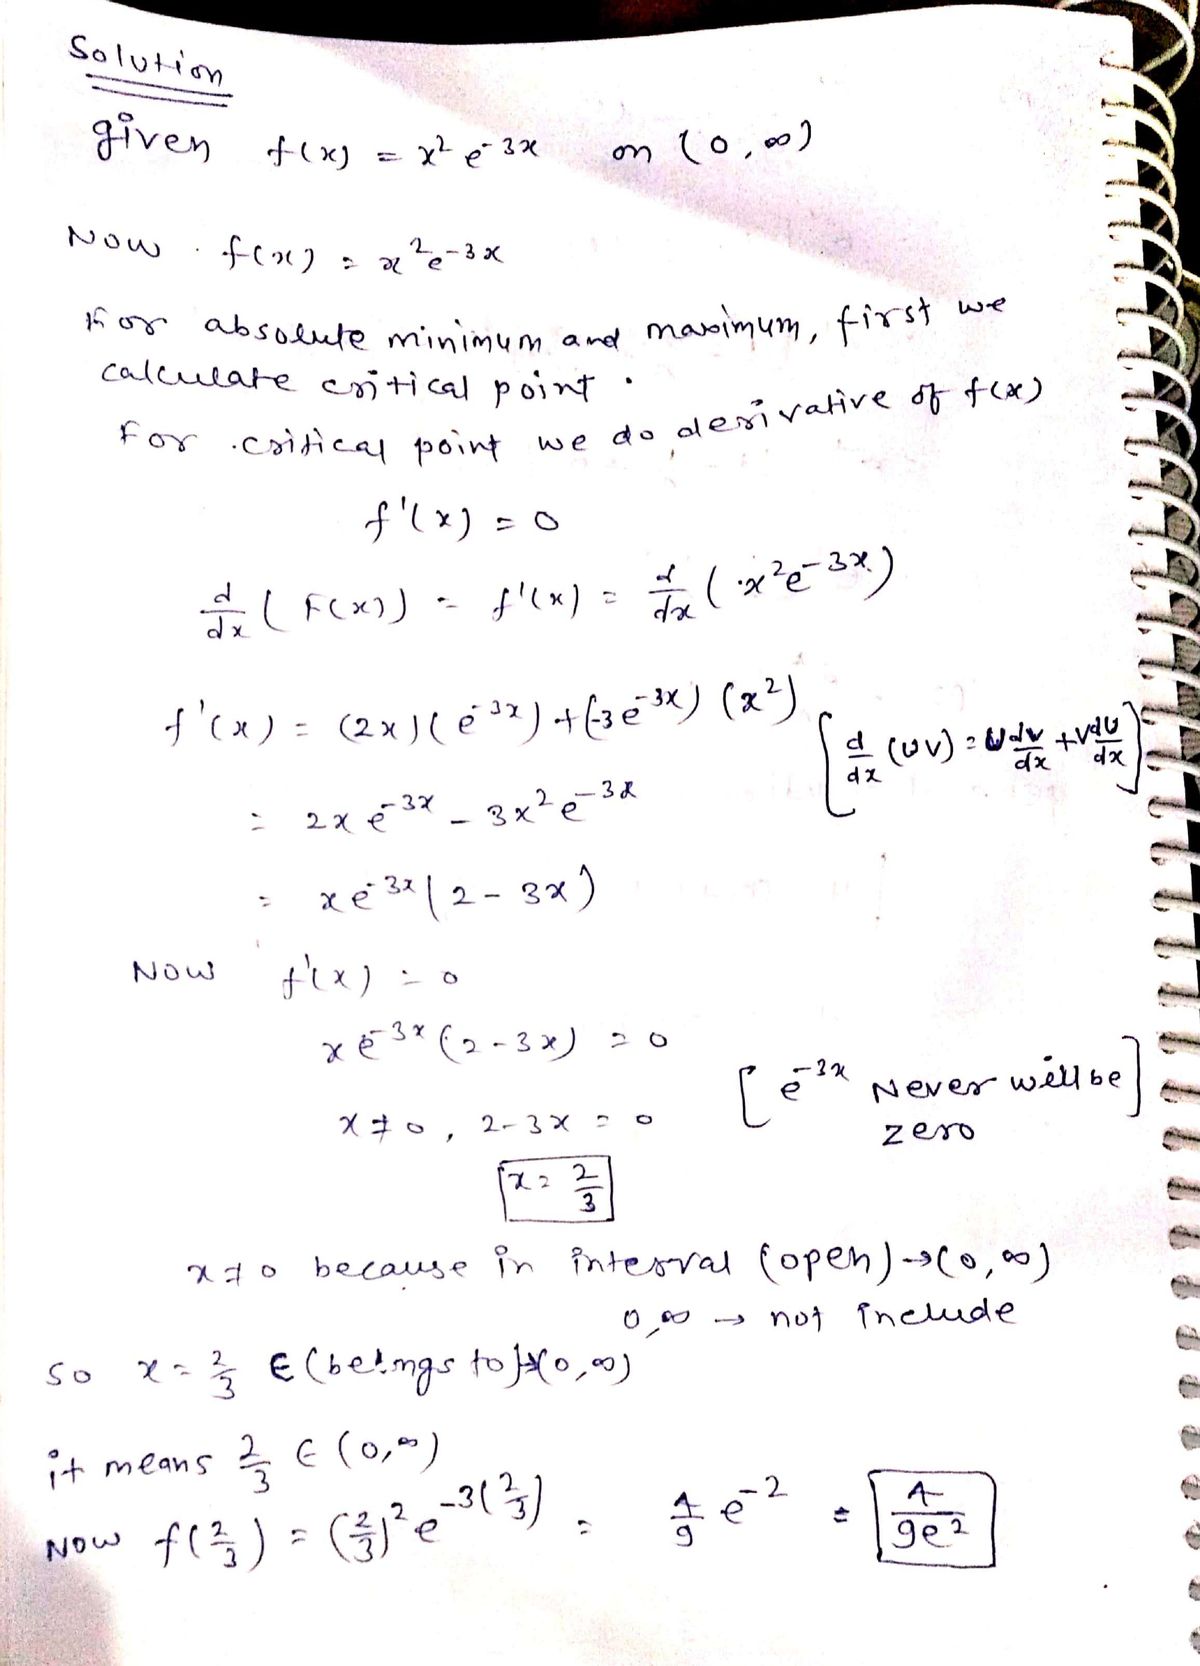 Solution
given f(x) = x² e^-3x on (0, ∞)
Now . f(x) = x² e^-3x
For absolute minimum and maximum, first we
calculate critical point .
For . critical point we do derivative of f(x)
f'(x) = 0
d/dx ( F(x)) = f'(x) = d/dx ( x² e^-3x )
f'(x) = (2x)(e^-3x) + (-3e^-3x) (x²) [ d/dx (UV) = U dv/dx + V dU/dx ]
= 2x e^-3x - 3x² e^-3x
= x e^-3x ( 2 - 3x )
Now f'(x) = 0
x e^-3x (2 - 3x) = 0
x ≠ 0 , 2 - 3x = 0 [ e^-3x Never will be zero ]
x = 2/3
x ≠ 0 because in interval (open) → (0, ∞)
0, ∞ → not include
so x = 2/3 ∈ (belongs to) → (0, ∞)
it means 2/3 ∈ (0, ∞)
Now f(2/3) = (2/3)² e^-3(2/3) = 4/9 e^-2 = 4/9e²